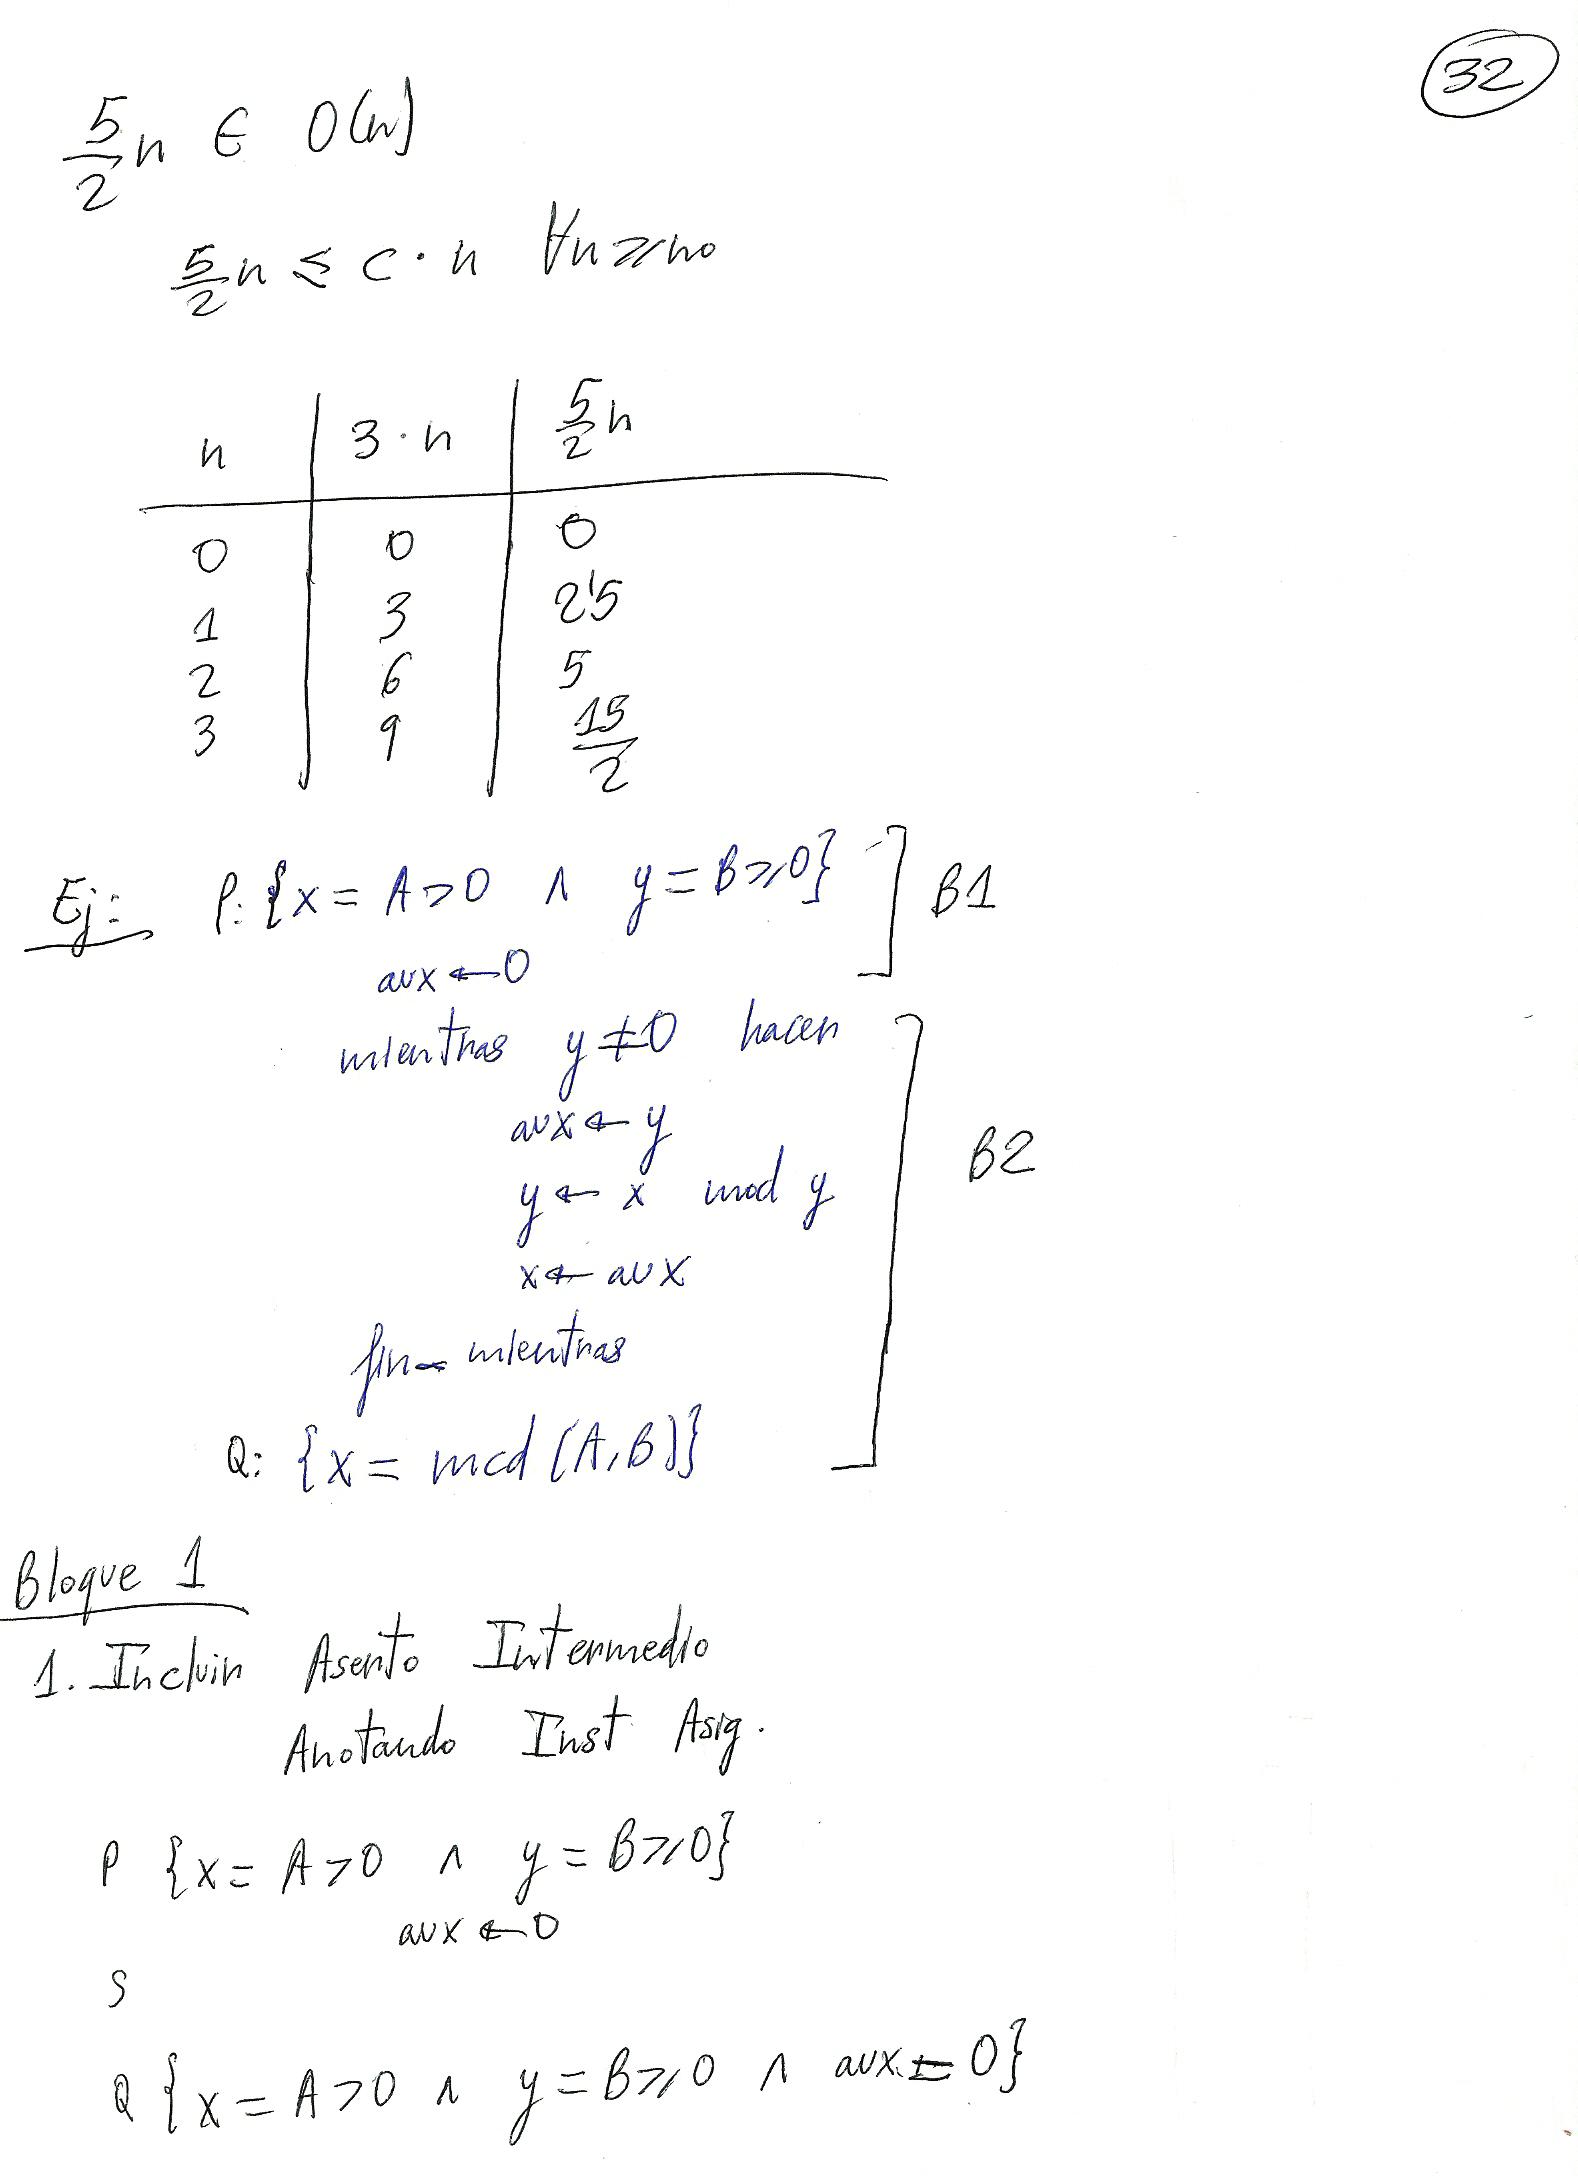 32
5/2 n ∈ O(n)
5/2 n ≤ c · n ∀n ≥ n0
n | 3 · n | 5/2 n
0 | 0 | 0
1 | 3 | 2'5
2 | 6 | 5
3 | 9 | 15/2
Ej: P: {x = A > 0 ∧ y = B ≥ 0} B1
aux ← 0
mientras y ≠ 0 hacer
aux ← y
B2
y ← x mod y
x ← aux
fin-mientras
Q: {x = mcd (A,B)}
Bloque 1
1. Incluir Aserto Intermedio
Anotando Inst Asig.
P {x = A > 0 ∧ y = B ≥ 0}
aux ← 0
S
Q {x = A > 0 ∧ y = B ≥ 0 ∧ aux = 0}